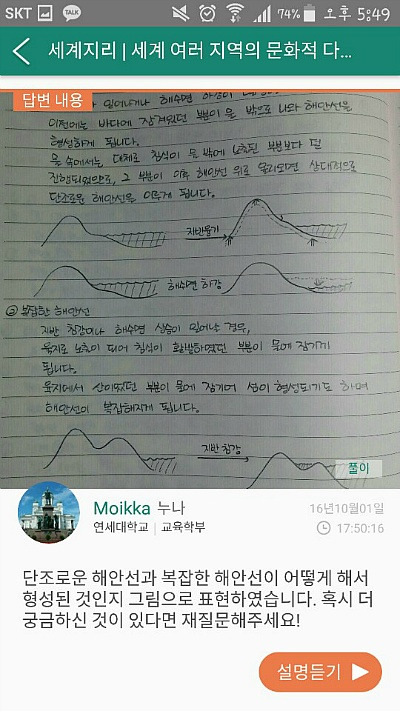 SKT TALK 74% 오후 5:49
세계지리 | 세계 여러 지역의 문화적 다...
답변 내용
일어나거나 해수면
이전에는 바다에 잠겨있던 부분이 물 밖으로 나와 해안선을
형성하게 됩니다.
물 속에서는 대체로 침식이 물 밖에 노출된 부분보다 덜
진행되었으므로, 그 부분이 이후 해안선 위로 올라오면 상대적으로
단조로운 해안선을 이루게 됩니다.
지반융기
해수면 하강
② 복잡한 해안선
지반 침강이나 해수면 상승이 일어난 경우,
육지로 노출이 되어 침식이 활발하였던 부분이 물에 잠기게
됩니다.
육지에서 산이었던 부분이 물에 잠기며 섬이 형성되기도 하며
해안선이 복잡해지게 됩니다.
지반 침강
풀이
Moikka 누나
16년10월01일
연세대학교 | 교육학부
17:50:16
단조로운 해안선과 복잡한 해안선이 어떻게 해서
형성된 것인지 그림으로 표현하였습니다. 혹시 더
궁금하신 것이 있다면 재질문해주세요!
설명듣기